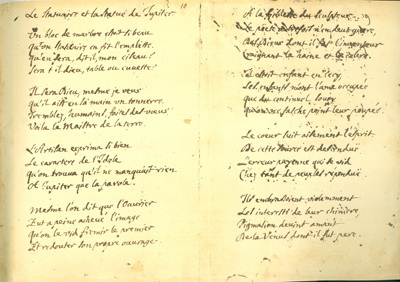 Le Statuaire et la Statue de Jupiter
10
Un bloc de marbre estoit si beau
Qu'un Statuaire en fit l'emplette.
Qu'en fera, dit il, mon ciseau?
Sera t il dieu, table ou cuvette?
Il sera Dieu, mesme je veux
Qu'il ait en la main un tonnerre.
Tremblez, humains, faites des voeux
Voila le Maistre de la terre.
L'Artisan exprima si bien
Le caractere de l'Idole
Qu'on trouva qu'il ne manquoit rien
A Jupiter que la parole.
Mesme l'on dit que l'Ouvrier
Eut a peine achevé l'image
Qu'on le vid fremir le premier
Et redouter son propre ouvrage.
A la foiblesse du Sculpteur
Le poete autrefois n'en dut guere,
Des Dieux dont il fut l'inventeur
Craignant la haine et la colere.
Il estoit enfant en cecy,
Les enfants n'ont l'ame occupée
Que du continuel soucy
Qu'on ne fasche point leur poupée.
Le coeur suit aisement l'esprit
De cette source est descendue
L'erreur payenne qui se vid
Chez tant de peuples repandue.
Ils embrassoient violemment
Les interests de leur chimere.
Pigmalion devint amant
De la Venus dont il fut pere.